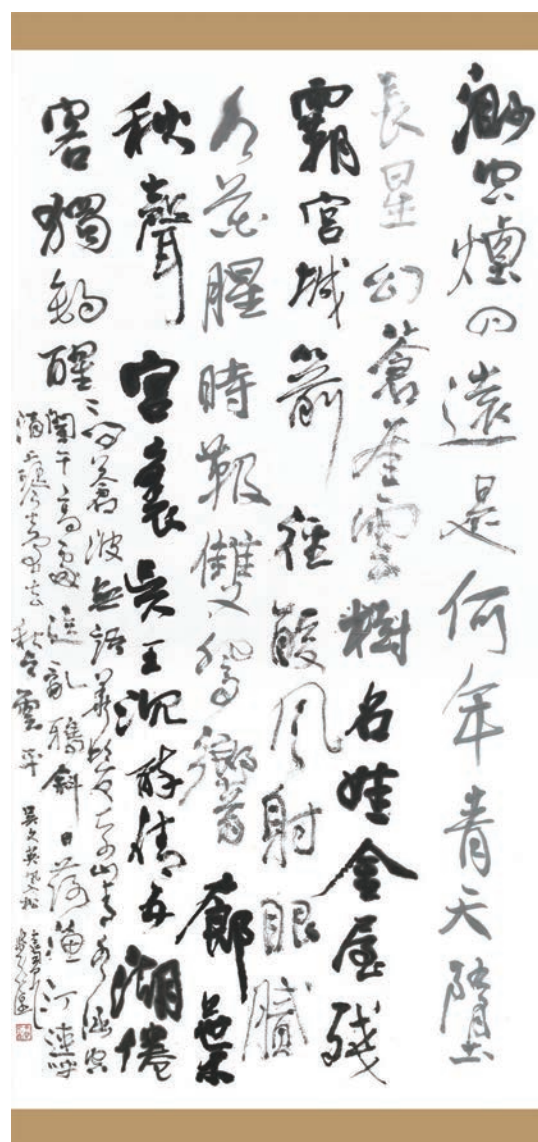 渺空煙四遠是何年青天墮
長星幻蒼崖雲樹名娃金屋殘
霸宮城箭徑酸風射眼膩
水花腥時靸雙鴛響廊葉
秋聲宮裏吳王沈醉倩五湖倦
客獨釣醒
醒問蒼波無語華髮奈山青水涵空
闌干高處送亂鴉斜日落漁汀連呼
酒上琴臺去秋與雲平 吳文英